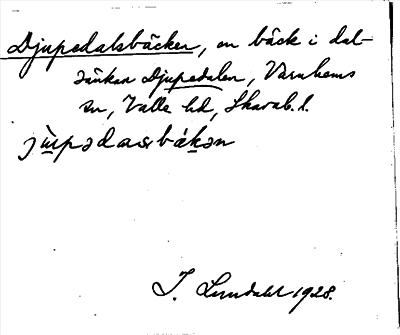 Djupedalsbäcken, en bäck i dal-
sänkan Djupedalen, Varnhems
sn, Valle hd, Skarab. l.
jùpədasbákən
I. Lundahl 1928.